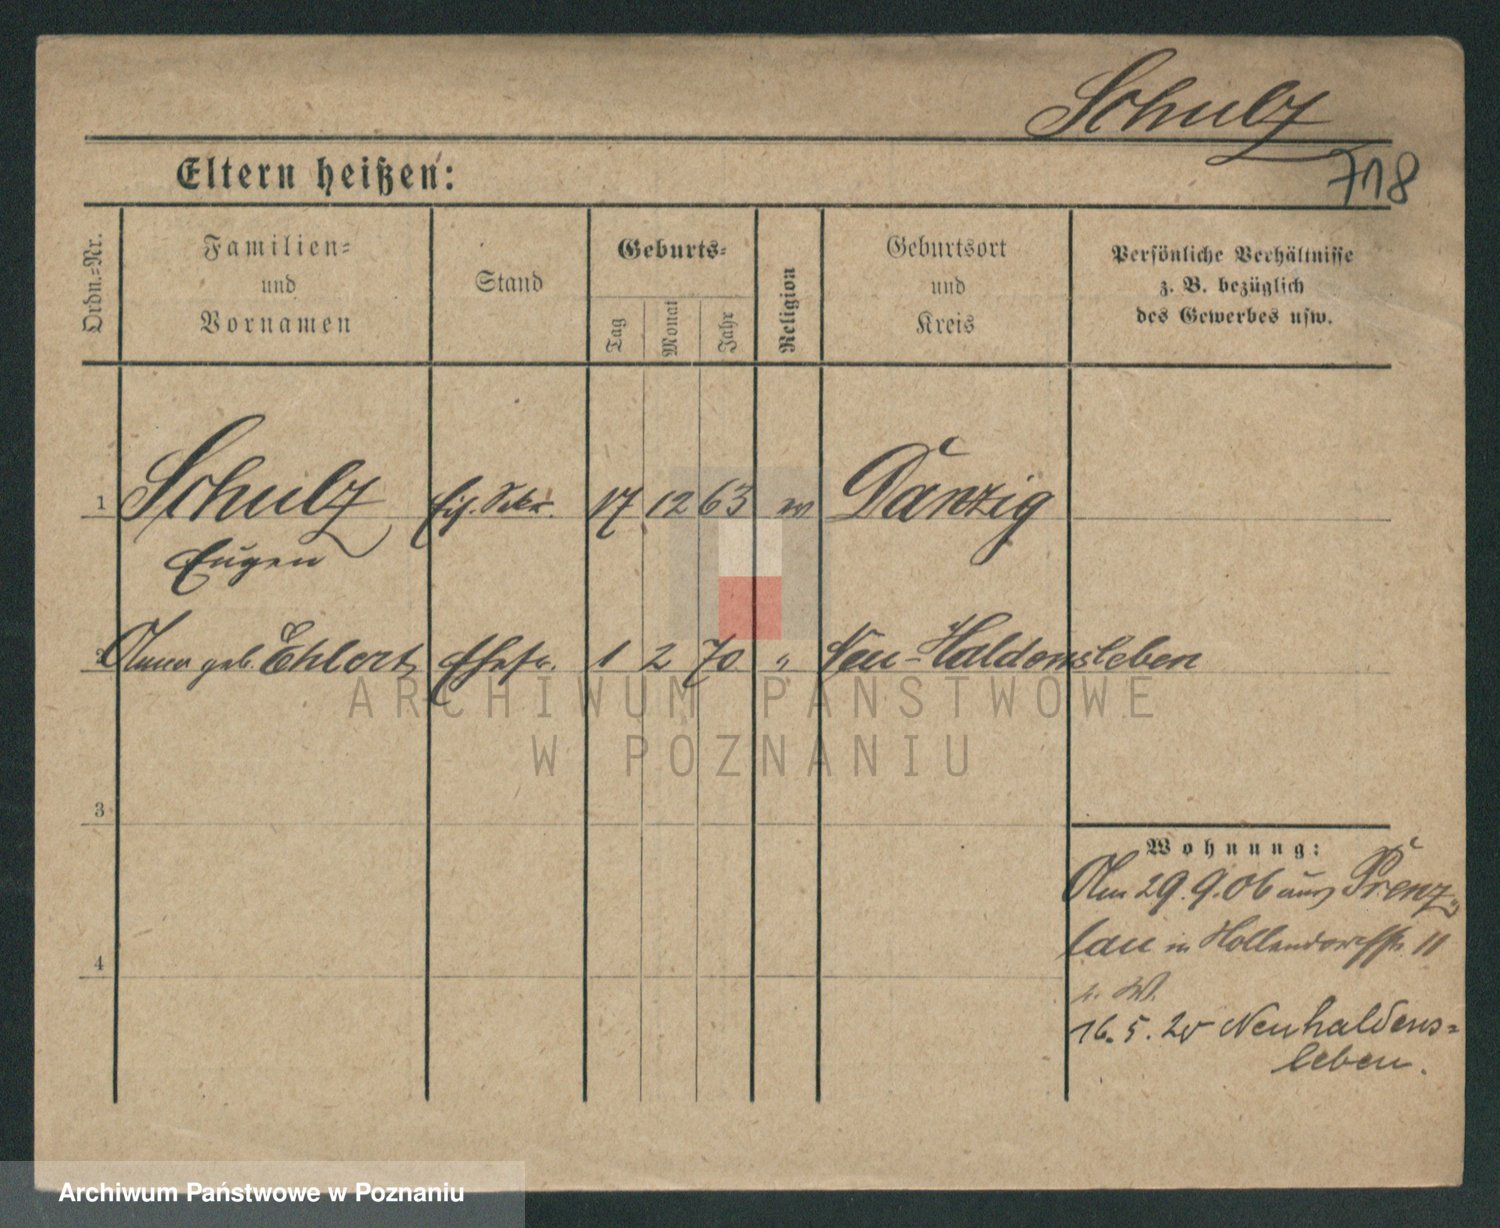 Schulz
718
Eltern heißen:
Ordn.=Nr.
Familien=
und
Vornamen
Stand
Geburts=
Tag
Monat
Jahr
Religion
Geburtsort
und
Kreis
Persönliche Verhältnisse
z. B. bezüglich
des Gewerbes usw.
1 Schulz Eis. Sekr. 17 12 63 ev Danzig
Eugen
2 Anna geb. Ehlert Ehefr. 1 2 70 " Neu-Haldensleben
3
4
Wohnung:
Am 29.9.06 aus Prenz=
lau in Hollendorffstr. 11
16.5.20 Neuhaldens=
leben.
ARCHIWUM PAŃSTWOWE
W POZNANIU
Archiwum Państwowe w Poznaniu